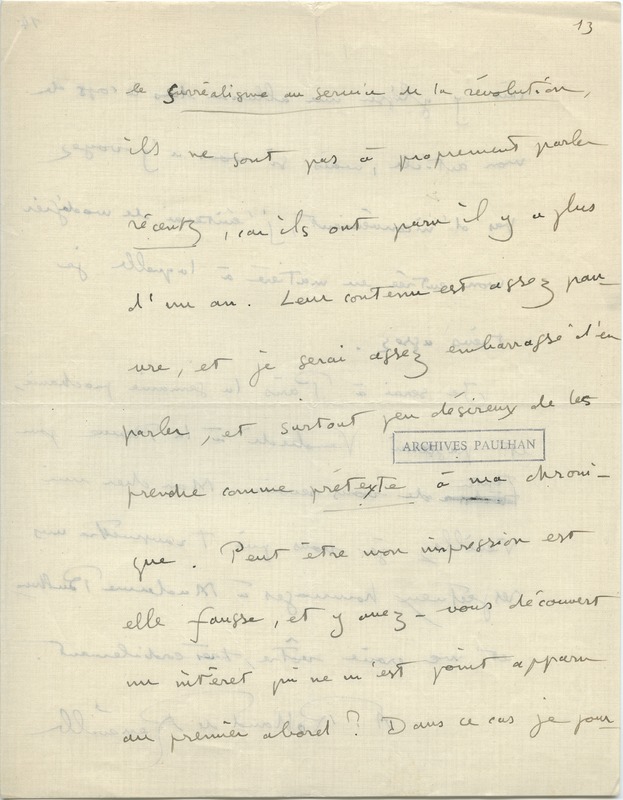 13
le Surréalisme au service de la révolution,
ils ne sont pas à proprement parler
récents, car ils ont paru il y a plus
d'un an. Leur contenu est assez pau-
vre, et je serai assez embarrassé d'en
parler, et surtout peu désireux de les
ARCHIVES PAULHAN
prendre comme prétexte à ma chroni-
que. Peut être mon impression est
elle fausse, et y avez-vous découvert
un intéret qui ne m'est point apparu
au premier abord ? Dans ce cas je pour-